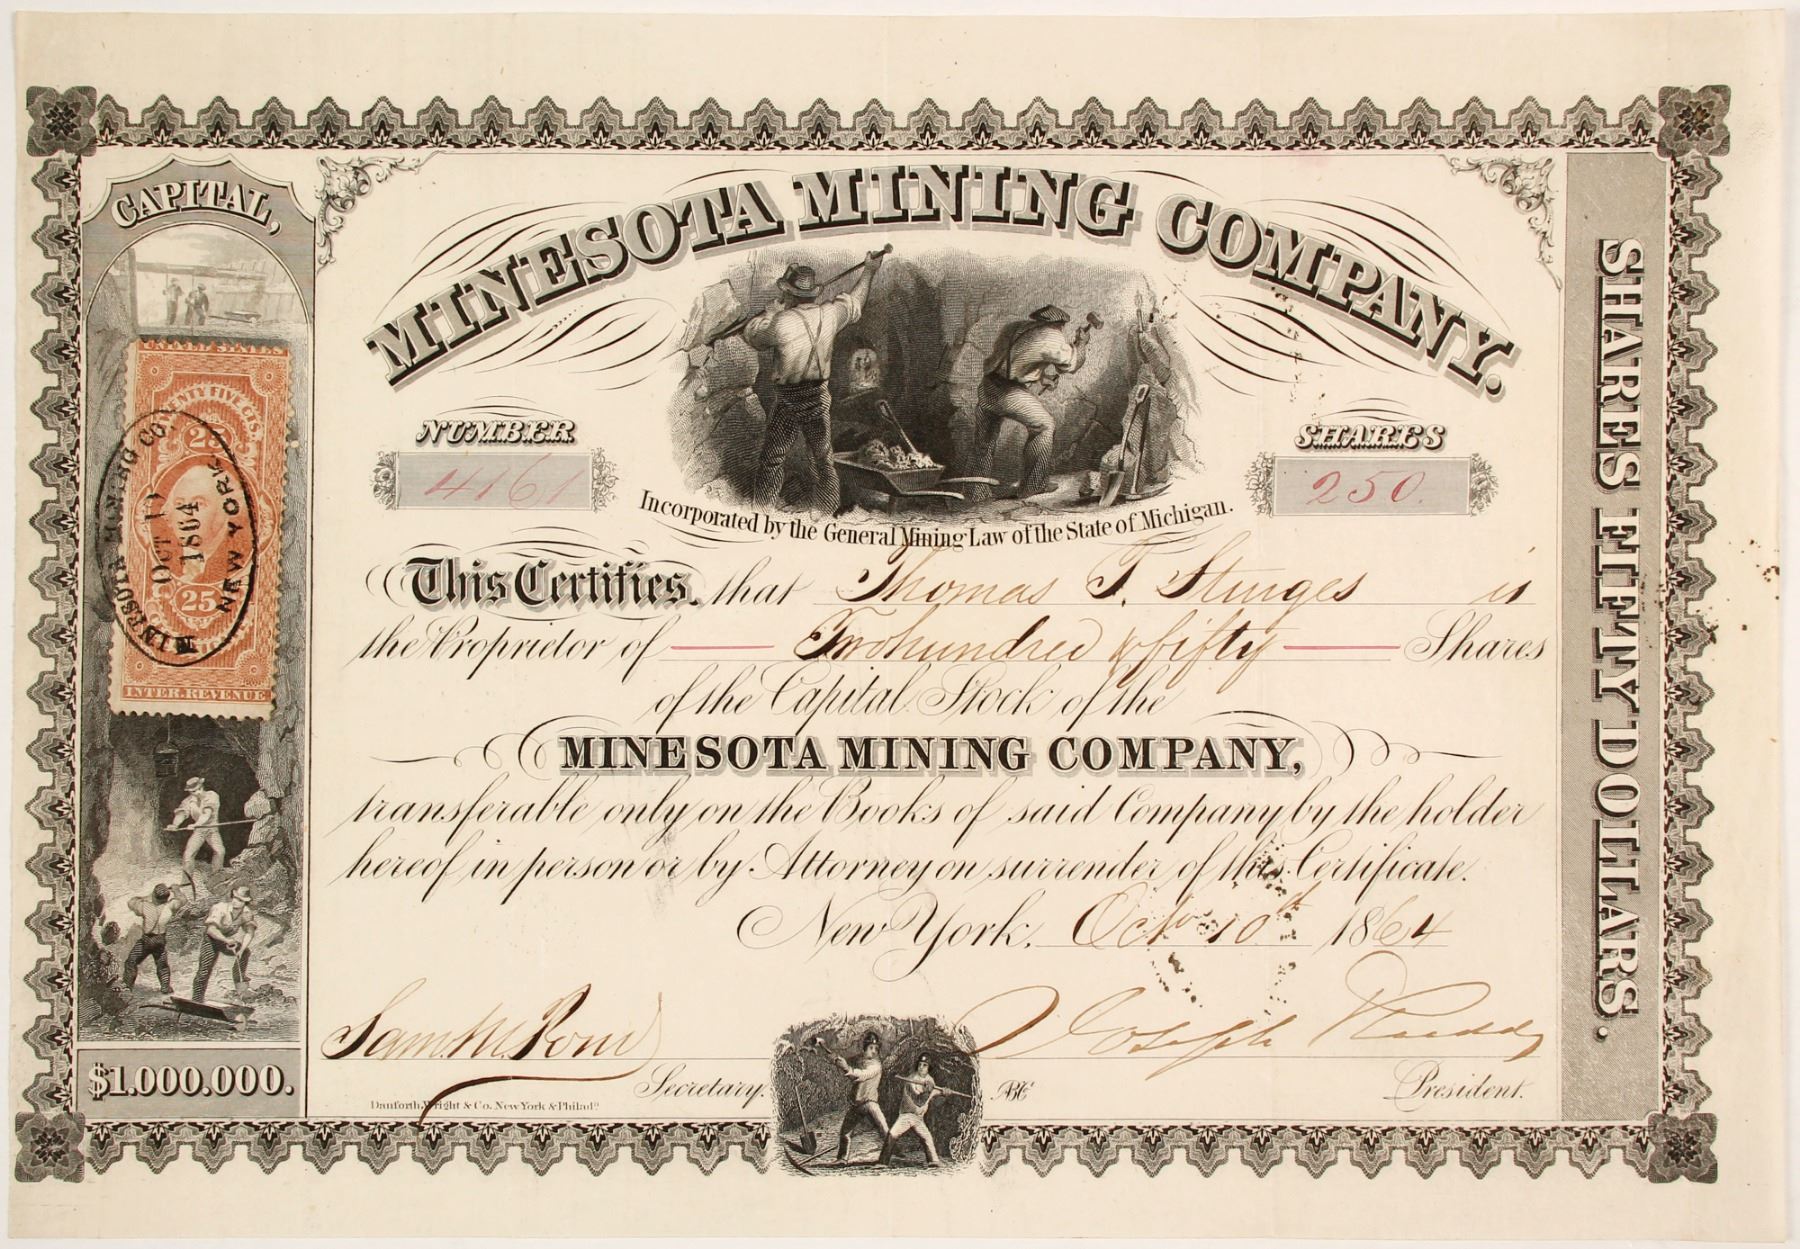 CAPITAL,
MINESOTA MINING COMPANY.
NUMBER
4161
SHARES
250.
Incorporated by the General Mining Law of the State of Michigan.
This Certifies that Thomas T. Sturges is
the Proprietor of Two hundred & fifty Shares
of the Capital Stock of the
MINESOTA MINING COMPANY,
transferable only on the Books of said Company by the holder
hereof in person or by Attorney on surrender of this Certificate.
New York, Oct 10th 1864
Secretary.
President.
Danforth, Wright & Co. New York & Philada
$1.000.000.
SHARES FIFTY DOLLARS.
UNITED STATES
TWENTY FIVE CTS.
25
25
INTER. REVENUE
MINESOTA MINING CO.
OCT 10
1864
NEW YORK